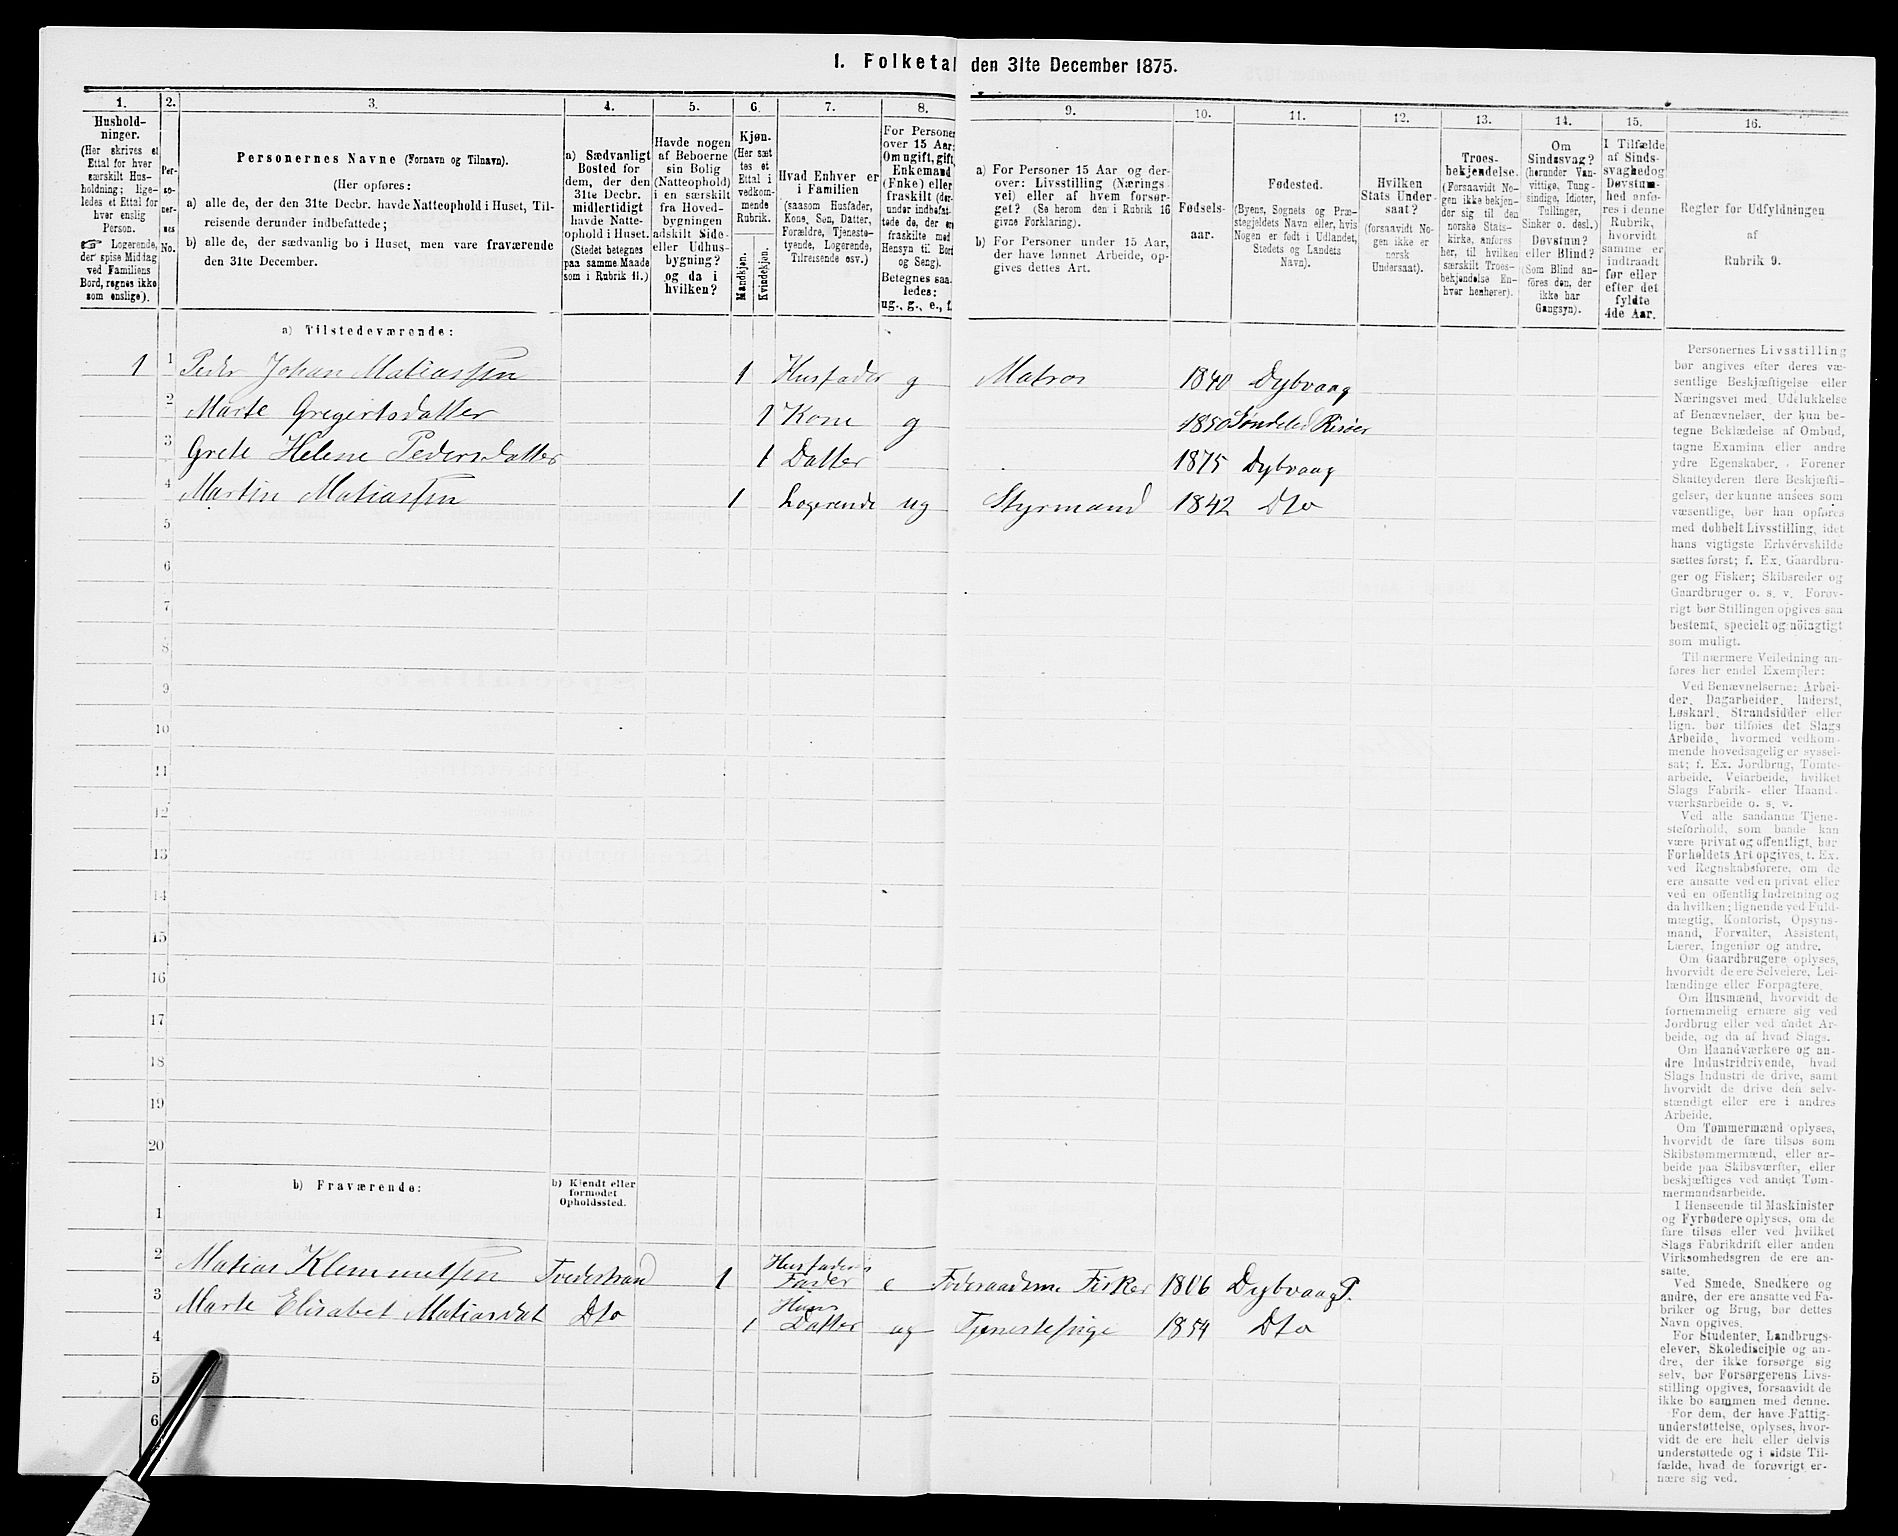 1. Folketal den 31te December 1875.
1. 2. 3. 4. 5. 6. 7. 8. 9. 10. 11. 12. 13. 14. 15. 16.
Hushold-
ninger.
(Her skrives et
Ettal for hver
særskilt Hus-
holdning; lige-
ledes et Ettal for
hver enslig
Person.
☞ Logerende,
der spise Middag
ved Familiens
Bord, regnes ikke
som enslige).
Per-
so-
ner-
nes
No.
Personernes Navne (Fornavn og Tilnavn).
(Her opføres:
a) alle de, der den 31te Decbr. havde Natteophold i Huset, Til-
reisende derunder indbefattede;
b) alle de, der sædvanlig bo i Huset, men vare fraværende
den 31te December.
a) Sædvanligt
Bosted for
dem, der den
31te Decbr.
midlertidigt
havde Natte-
ophold i Huset.
(Stedet betegnes
paa samme Maade
som i Rubrik 11.)
Havde nogen
af Beboerne
sin Bolig
(Natteophold)
i en særskilt
fra Hoved-
bygningen
adskilt Side-
eller Udhus-
bygning?
og da i
hvilken?
Kjøn.
(Her sæt
tes et
Ettal i
vedkom-
mende
Rubrik.
Mandkjøn.
Kvindekjøn.
Hvad Enhver er
i Familien
(saasom Husfader,
Kone, Søn, Datter,
Forældre, Tjeneste-
tyende, Logerende,
Tilreisende osv.)
For Personer
over 15 Aar:
Om ugift, gift,
Enkemand
(Enke) eller
fraskilt (der-
under indbefat-
tede de, der ere
fraskilte med
Hensyn til Bord
og Seng).
Betegnes saa-
ledes:
ug., g., e., f.
a) For Personer 15 Aar og der-
over: Livsstilling (Nærings-
vei) eller af hvem forsør-
get? (Se herom den i Rubrik 16
givne Forklaring).
b) For Personer under 15 Aar,
der have lønnet Arbeide, op-
gives dettes Art.
Fødsels-
aar.
Fødested.
(Byens, Sognets og Præ-
stegjeldets Navn eller, hvis
Nogen er født i Udlandet,
Stedets og Landets
Navn).
Hvilken
Stats Under-
saat?
(forsaavidt No-
gen ikke er
norsk
Undersaat).
Troes-
bekjendelse.
(Forsaavidt No-
gen ikke bekjen-
der sig til den
norske Stats-
kirke, anføres
her, til hvilken
særskilt Troes-
bekjendelse En-
hver henhører).
Om
Sindssvag?
(herunder Van-
vittige, Tung-
sindige, Idioter,
Tullinger,
Sinker o. desl.)
Døvstum?
eller Blind?
(Som Blind an-
føres den, der
ikke har
Gangsyn).
I Tilfælde
af Sinds-
svaghed og
Døvstum-
hed anfø-
res i denne
Rubrik,
hvorvidt
samme er
indtraadt
før eller
efter det
fyldte
4de Aar.
Regler for Udfyldningen
af
Rubrik 9.
a) Tilstedeværende:
1 1 Peder Johan Matiassen 1 Husfader g Matros 1840 Dybvaag
2 Marte Gregertsdatter 1 Kone g 1850 Søndeled Risøer
3 Grete Helene Pedersdatter 1 Datter 1875 Dybvaag
4 Martin Matiassen 1 Logerende ug Styrmand 1842 Dto
5
6
7
8
9
10
11
12
13
14
15
16
17
18
19
20
b) Fraværende:
b) Kjendt eller
formodet
Opholdssted.
1
2 Matias Klemmetsen Tvedestrand 1 Husfaders Fader e Føderaadsm Fisker 1806 Dybvaag P.
3 Marte Elisabet Matiasdat Dto 1 Hans Datter ug Tjenestepige 1854 Dto
4
5
6
Personernes Livsstilling
bør angives efter deres væ-
sentlige Beskjæftigelse eller
Næringsvei med Udelukkelse
af Benævnelser, der kun be-
tegne Beklædelse af Ombud,
tagne Examina eller andre
ydre Egenskaber. Forener
Skatteyderen flere Beskjæfti-
gelser, der kunne ansees som
væsentlige, bør han opføres
med dobbelt Livsstilling, idet
hans vigtigste Erhvérvskilde
sættes først; f. Ex. Gaardbru-
ger og Fisker; Skibsreder og
Gaardbruger o. s. v. Forøv-
rigt bør Stillingen opgives saa
bestemt, specielt og nöiagtigt
som muligt.
Til nærmere Veiledning an-
føres her endel Exempler:
Ved Benævnelserne: Arbei-
der, Dagarbeider, Inderst,
Løskarl, Strandsidder eller
lign. bør tilføies det Slags
Arbeide, hvormed vedkom-
mende hovedsagelig er syssel-
sat; f. Ex. Jordbrug, Tomte-
arbeide, Veiarbeide, hvilket
Slags Fabrik- eller Haand-
værksarbeide o. s. v.
Ved alle saadanne Tjene-
steforhold, som baade kan
være privat og offentligt, bør
Forholdets Art opgives, t. Ex.
ved Regnskabsførere, om de
ere ansatte ved en privat eller
ved en offentlig Indretning og
da hvilken; lignende ved Fuld-
mægtig, Kontorist, Opsyns-
mand, Forvalter, Assistent,
Lærer, Ingeniør og andre.
Om Gaardbrugere oplyses,
hvorvidt de ere Selveiere, Lei-
lændinge eller Forpagtere.
Om Husmænd, hvorvidt de
fornemmelig ernære sig ved
Jordbrug eller ved andet Ar-
beide, og da af hvad Slags.
Om Haandværkere og an-
dre Industridrivende, hvad
Slags Industri de drive, samt
hvorvidt de drive den selv-
stændigt eller ere i andres
Arbeide.
Om Tømmermænd oplyses,
hvorvidt de fare tilsøs som
Skibstømmermænd, eller ar-
beide paa Skibsværfter, eller
beskjæftiges ved andet Tøm-
mermandsarbeide.
I Henseende til Maskinister
og Fyrbødere oplyses, om de
fare tilsøs eller ved hvilket
Slags Fabrikdrift eller anden
Virksomhedsgren de ere an-
satte.
Ved Smede, Snedkere og
andre, der ere ansatte ved Fa-
briker og Brug, bør dettes
Navn opgives.
For Studenter, Landbrugs-
elever, Skoledisciple og an-
dre, der ikke forsørge sig
selv, bør Forsørgerens Livs-
stilling opgives, forsaavidt de
ikke bo sammen med denne.
For dem, der have Fattig-
understøttelse, oplyses, hvor-
vidt de ere helt eller delvis
understøttede og i sidste Til-
fælde, hvad de forøvrigt er-
nære sig ved.